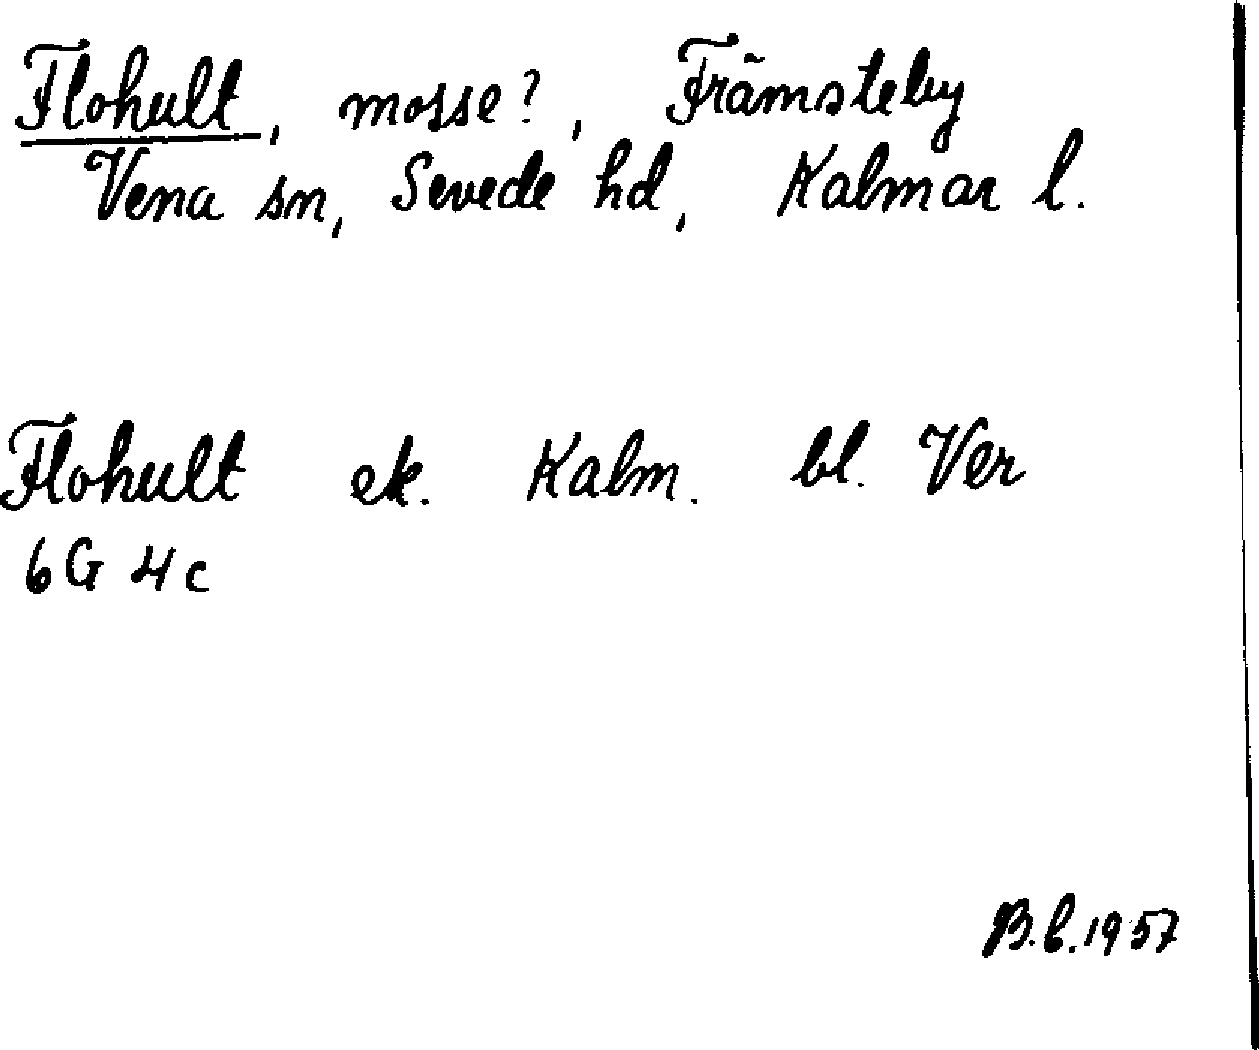 Flohult, mosse?, Främsteby
Vena sn, Sevede hd, Kalmar l.
Flohult ek. Kalm. bl. Ver
6G 4c
B.b.1957